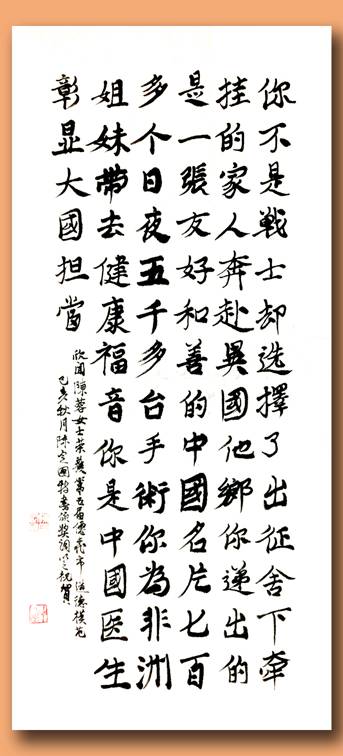 你不是戰士却选擇了出征舍下牽
挂的家人奔赴異國他鄉你递出的
是一張友好和善的中國名片七百
多个日夜五千多台手術你為非洲
姐妹带去健康福音你是中國医生
彰显大國担當
欣闻陳蓉女士荣获第五届市道德模范
己亥秋月陈定國特書颁奖词以祝賀